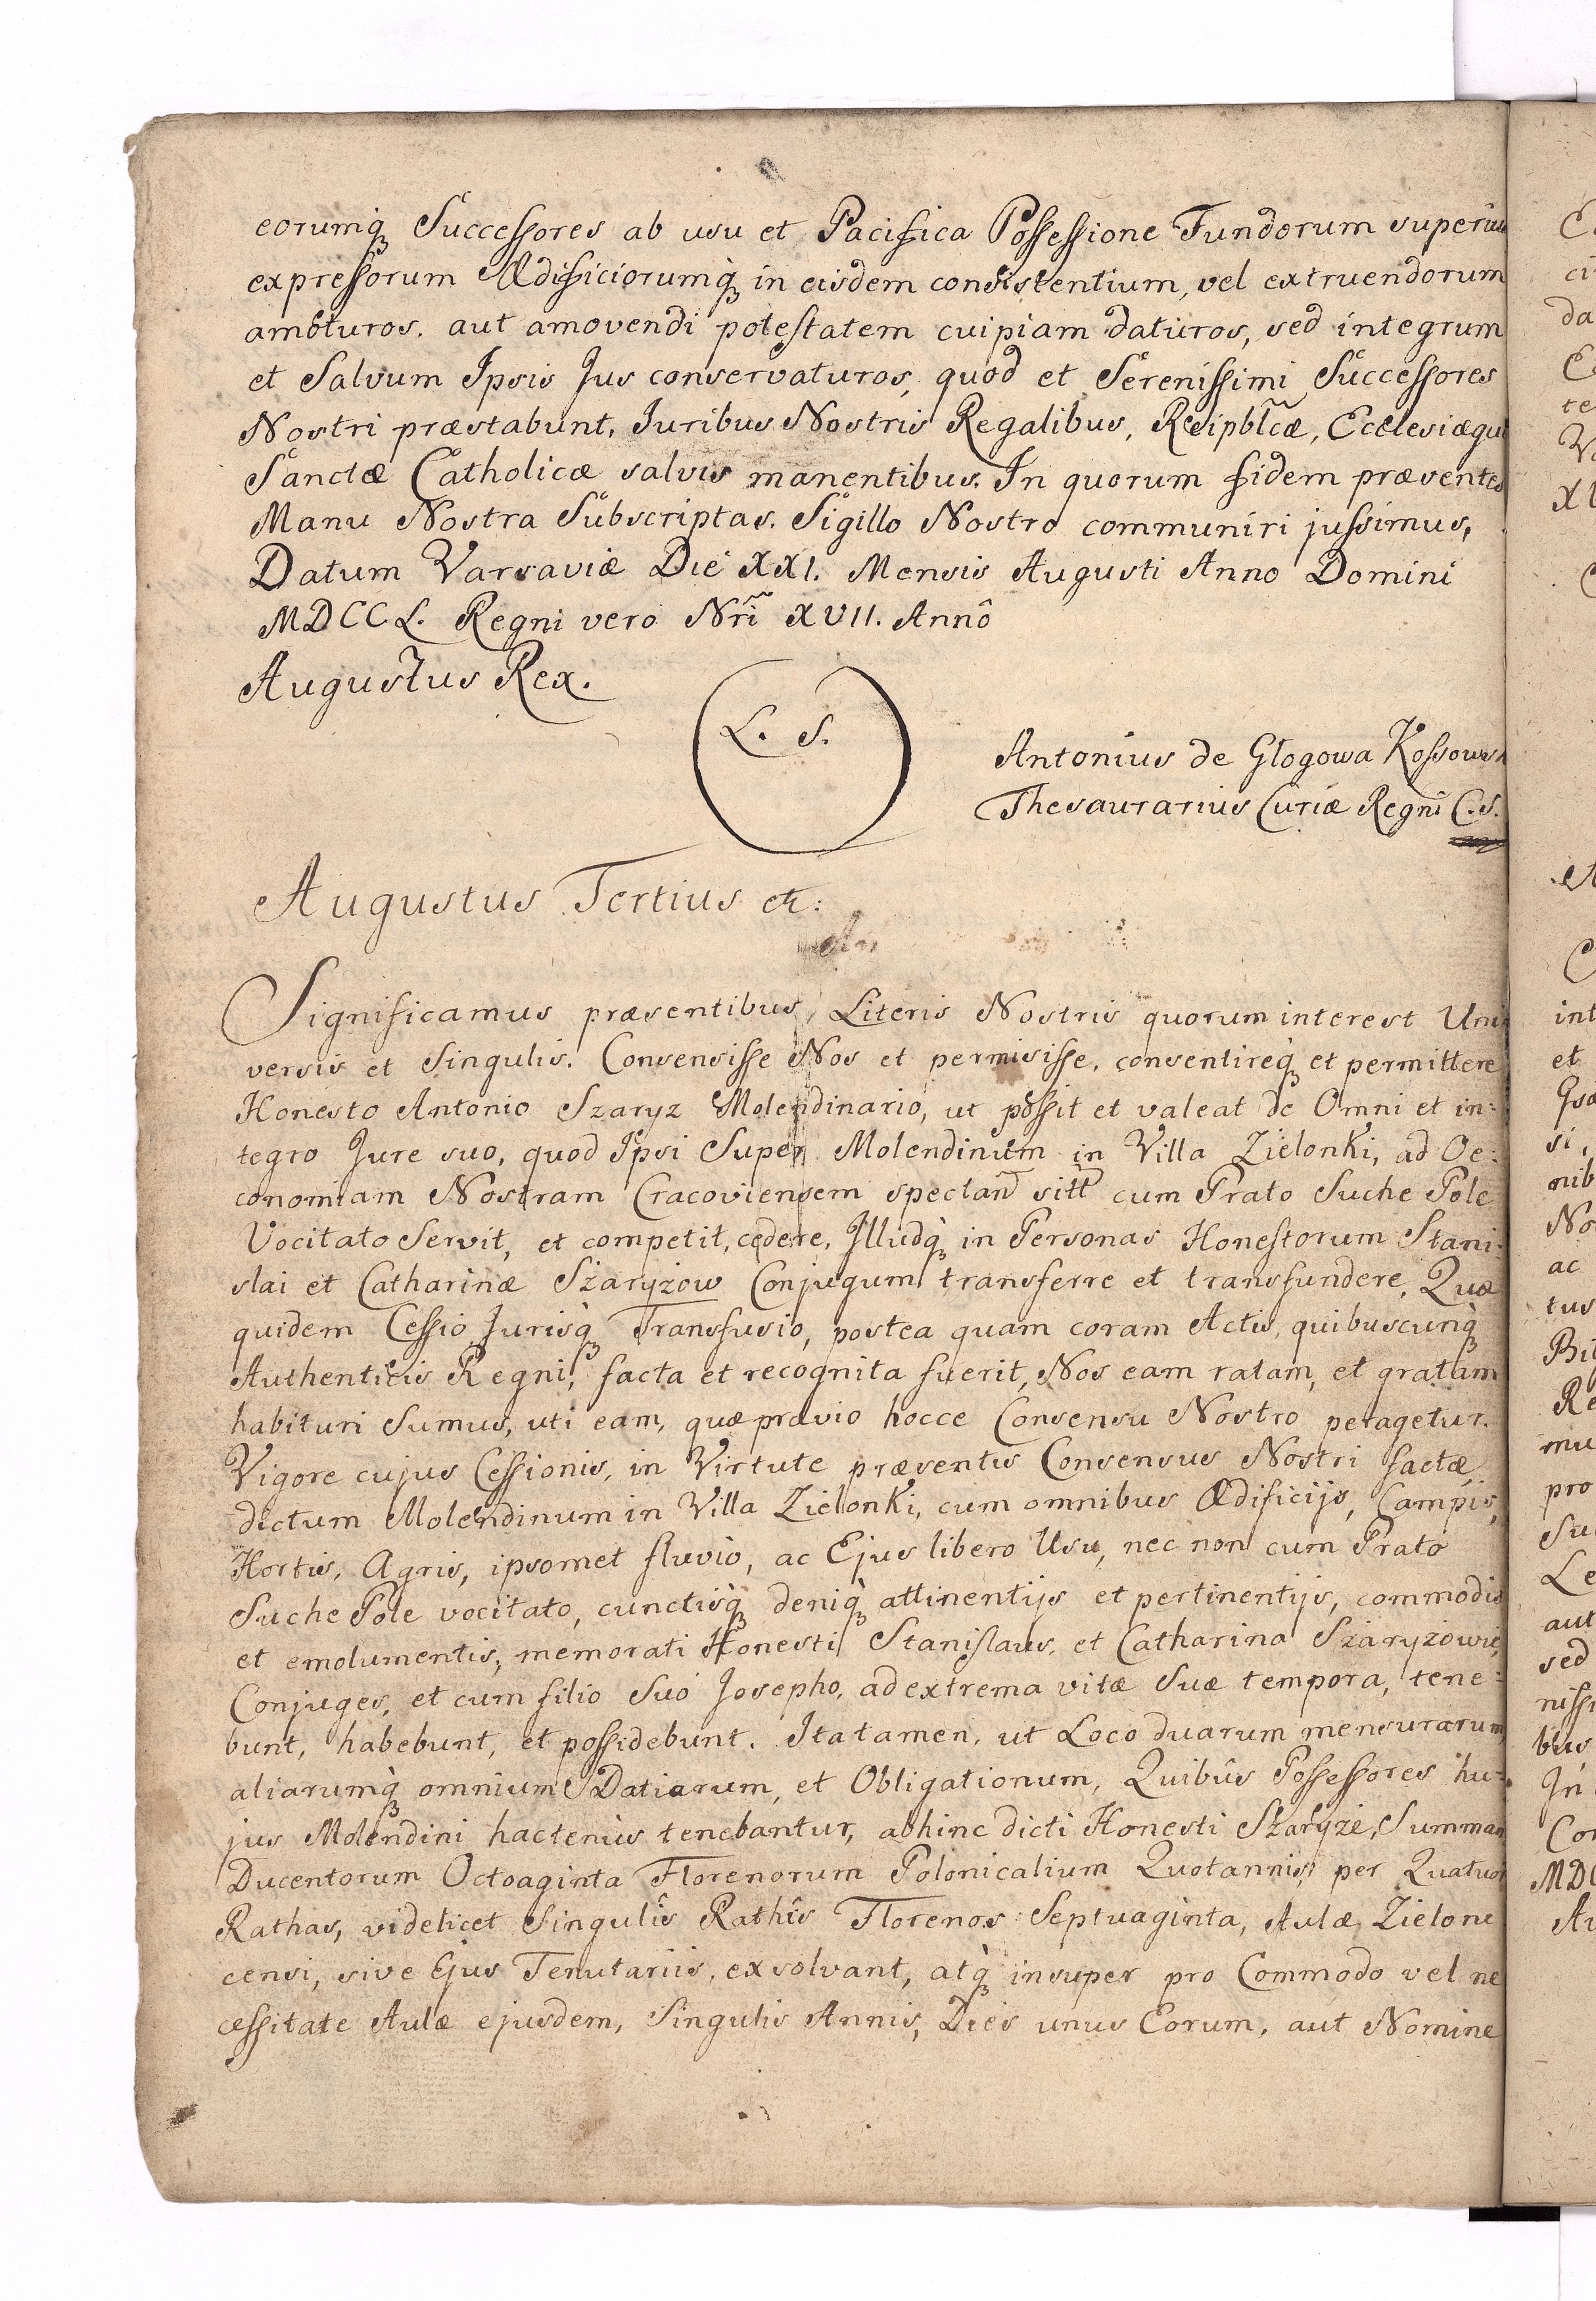 eorumq̀ Successores ab usu et Pacifica Possessione Fundorum superius
expressorum Ædificiorumq̀ in eisdem consistentium, vel extruendorum
amoturos. aut amovendi potestatem cuipiam daturos, sed integrum
et Salvum Ipsis Jus conservaturos, quod et Serenissimi Successores
Nostri præstabunt, Juribus Nostris Regalibus, Reipbl̃cæ, Ecclesiæque
Sanctæ Catholicæ salvis manentibus. In quorum fidem præsentes
Manu Nostra Subscriptas. Sigillo Nostro communiri jussimus,
Datum Varsaviæ Die XXI. Mensis Augusti Anno Domini
MDCCL. Regni vero Nr̃i XVII. Annô
Augustus Rex.
L. S.
Antonius de Głogowa Kossowsk
Thesaurarius Curiæ Regni C.S.
Augustus Tertius etc:
Significamus præsentibus Literis Nostris quorum interest Uni
versis et Singulis. Consensisse Nos et permisisse, consentireq̀ et permittere
Honesto Antonio Szaryz Molendinario, ut possit et valeat de Omni et in:
tegro Jure suo, quod Ipsi Super Molendinum in Villa Zielonki, ad Oe:
conomiam Nostram Cracoviensem spectan̄ sitt̄ cum Prato Suche Pole
Vocitato Servit, et competit, cedere, Illudq̀ in Personas Honestorum Stani:
slai et Catharinæ Szaryzow Conjugum transferre et transfundere, Quæ
quidem Cessio Jurisq̀ Transfusio, postea quam coram Actis, quibuscunq̀
Authenticis Regni, facta et recognita fuerit, Nos eam ratam, et gratam
habituri Sumus, uti eam, quæ prævio hocce Consensu Nostro peragetur.
Vigore cujus Cessionis, in Virtute præsentis Consensus Nostri factæ,
dictum Molendinum in Villa Zielonki, cum omnibus Ædificijs, Campis,
Hortis, Agris, ipsomet fluvio, ac Ejus libero Usu, nec non cum Prato
Suche Pole vocitato, cunctisq̀ deniq̀ attinentijs et pertinentijs, commodis
et emolumentis, memorati Honesti Stanislaus, et Catharina Szaryzowie,
Conjuges, et cum filio Suo Josepho, ad extrema vitæ Suæ tempora, tene:
bunt, habebunt, et possidebunt. Ita tamen, ut Loco duarum mensurarum
aliarumq̀ omnium Datiarum, et Obligationum, Quibus Possessores hu:
jus Molendini hactenus tenebantur, abhinc dicti Honesti Szaryże, Summam
Ducentorum Octoaginta Florenorum Polonicalium Quotannis, per Quatuor
Rathas, videlicet Singulis Rathis Florenos Septuaginta, Aulæ Zielone
censi, sive Ejus Tenutariis, exsolvant, atq̀ insuper pro Commodo vel ne
cessitate Aulæ ejusdem, Singulis Annis, Dies unus Eorum, aut Nomine